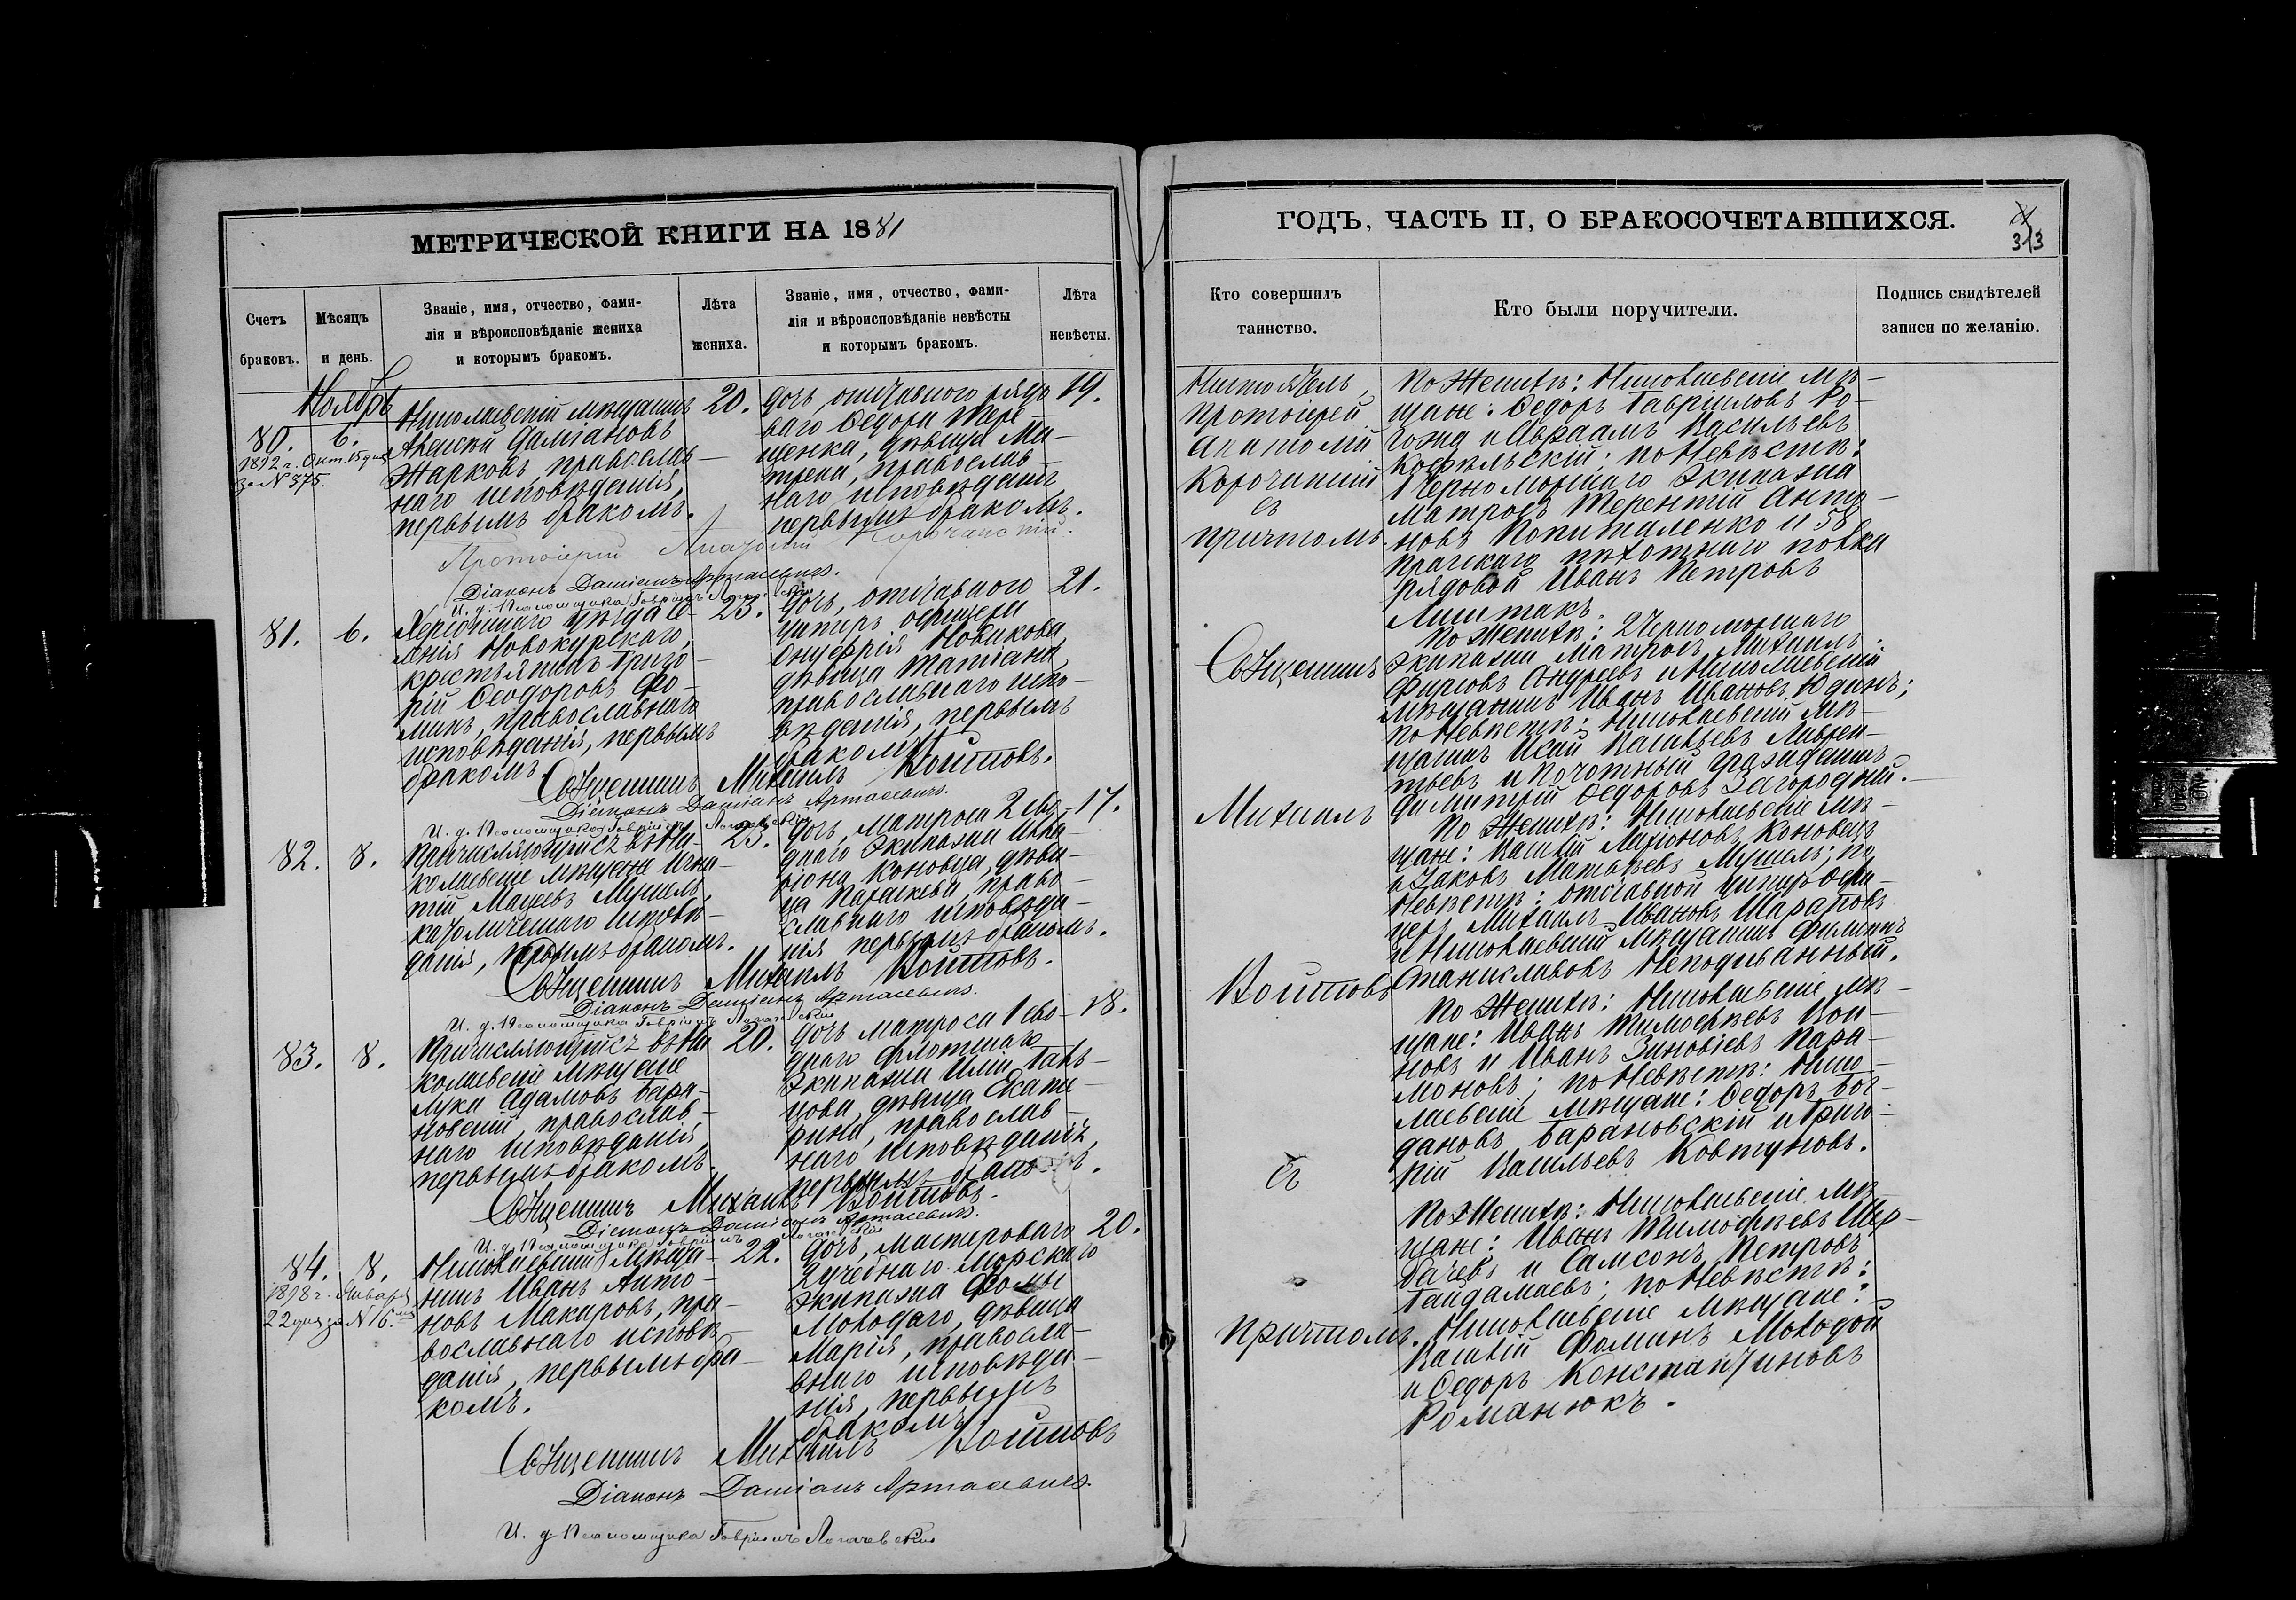 МЕТРИЧЕСКОЙ КНИГИ НА 1881
Счетъ браковъ.
Мѣсяцъ и день.
Званіе, имя, отчество, фами-
лія и вѣроисповѣданіе жениха
и которымъ бракомъ.
Лѣта жениха.
Званіе, имя, отчество, фами-
лія и вѣроисповѣданіе невѣсты
и которымъ бракомъ.
Лѣта невѣсты.
Ноябрь
80.
6.
за № 375.
Николаевскій мѣщанинъ
Алексѣй Даміановъ
Жарковъ, православ-
наго исповѣданія,
первымъ бракомъ.
20.
дочь отставного рядо
ваго Ѳедора Тере
щенка, дѣвица Ма-
трена, православ-
наго исповѣданія
первымъ бракомъ.
19.
Протоіерей Анатолій Корочанскій.
Діаконъ Даміанъ Артасевичъ.
И. д. Псаломщика Гавріилъ
81.
6.
Херсонскаго уѣзда се-
ленія Новокурскаго,
крестьянинъ Григо-
рій Ѳеодоровъ Фо-
минъ, православнаго
исповѣданія, первымъ
бракомъ.
23.
дочь, отставного
унтеръ офицера
Онуфрія Новикова,
дѣвица Татіана,
православнаго испо-
вѣданія, первымъ
бракомъ.
21.
Священникъ Михаилъ Войтовъ.
Діаконъ Даміанъ Артасевичъ.
И. д. Псаломщика Гавріилъ
82.
8.
Причисляющійся въ Ни-
колаевскіе мѣщане Игна-
тій Мацеевъ Мушель,
католическаго исповѣ-
данія, первымъ бракомъ.
23.
дочь, матроса 2 сво-
днаго Экипажа Илла-
ріона Коновца, дѣви-
ца Параскева, право-
славнаго исповѣда-
нія первымъ бракомъ.
17.
Священникъ Михаилъ Войтовъ.
Діаконъ Даміанъ Артасевичъ.
И. д. Псаломщика Гавріилъ
83.
8.
Причисляющійся въ Ни
колаевскіе мѣщане
Лука Адамовъ Бара-
новскій, православ-
наго исповѣданія,
первымъ бракомъ.
20.
дочь матроса 1 сво-
днаго Флотскаго
Экипажа Иліи
дѣвица Екате-
рина, православ-
наго исповѣданія,
первымъ
18.
Священникъ Михаилъ Войтовъ.
Діаконъ Даміанъ Артасевичъ.
И. д. Псаломщика Гавріилъ
84.
8.
1898 г. Января
22 дня за № 16.
Николаевскій мѣща-
нинъ Иванъ Анто-
новъ Макаровъ, пра-
вославнаго исповѣ-
данія, первымъ бра-
комъ.
22.
дочь, мастероваго
2 учебнаго Морскаго
Экипажа Фомы
Молодаго, дѣвица
Марія, правосла-
внаго исповѣда-
нія, первымъ
бракомъ.
20.
Священникъ Михаилъ Войтовъ
Діаконъ Даміанъ Артасевичъ.
И. д. Псаломщика Гавріилъ
ГОДЪ, ЧАСТЬ II, О БРАКОСОЧЕТАВШИХСЯ.
313
Кто совершилъ таинство.
Кто были поручители.
Подпись свидѣтелей
записи по желанію.
Настоятель,
Протоіерей
Анатолій
Корочанскій
съ
причтомъ.
По Женихѣ: Николаевскіе мѣ-
щане: Ѳедоръ Гавриловъ Ро-
гожа и Авраамъ Васильевъ
по Невѣстѣ:
1 Черноморскаго Экипажа
матросъ Терентій Анто-
новъ Копиталенко и 58
Пражскаго пѣхотнаго полка
рядовой Иванъ Петровъ
Священникъ
Михаилъ
Войтовъ
съ
причтомъ.
По Женихѣ: 2 Черноморскаго
Экипажа матросъ Михаилъ
Фирсовъ Андреевъ и Николаевскій
мѣщанинъ Иванъ Ивановъ Юдинъ;
по Невѣстѣ: Николаевскій мѣ-
щанинъ Исай Васильевъ Лаврен-
тьевъ и Почотный гражданинъ
Димитрій Ѳедоровъ Загородній.
По Женихѣ: Николаевскіе мѣ-
щане: Василій Ларіоновъ Коновецъ
и Яковъ Матвѣевъ Мушель; по
Невѣстѣ: отставной унтеръ офи-
церъ Михаилъ Ивановъ Шараповъ
и Николаевскій мѣщанинъ Филиппъ
Станиславовъ Неподиванный.
По Женихѣ: Николаевскіе мѣ-
щане: Иванъ Тимофѣевъ
новъ и Иванъ Зиновіевъ Пара-
моновъ; по Невѣстѣ: Нико-
лаевскіе мѣщане: Ѳедоръ Бог-
дановъ Барановскій и Григо-
рій Васильевъ Ковтуновъ.
По Женихѣ: Николаевскіе мѣ-
щане: Иванъ Тимофѣевъ Щер-
бачевъ и Самсонъ Петровъ
Гайдамаевъ; по Невѣстѣ:
Николаевскіе мѣщане:
Василій Фоминъ Молодой
и Ѳедоръ Константиновъ
Романюкъ.